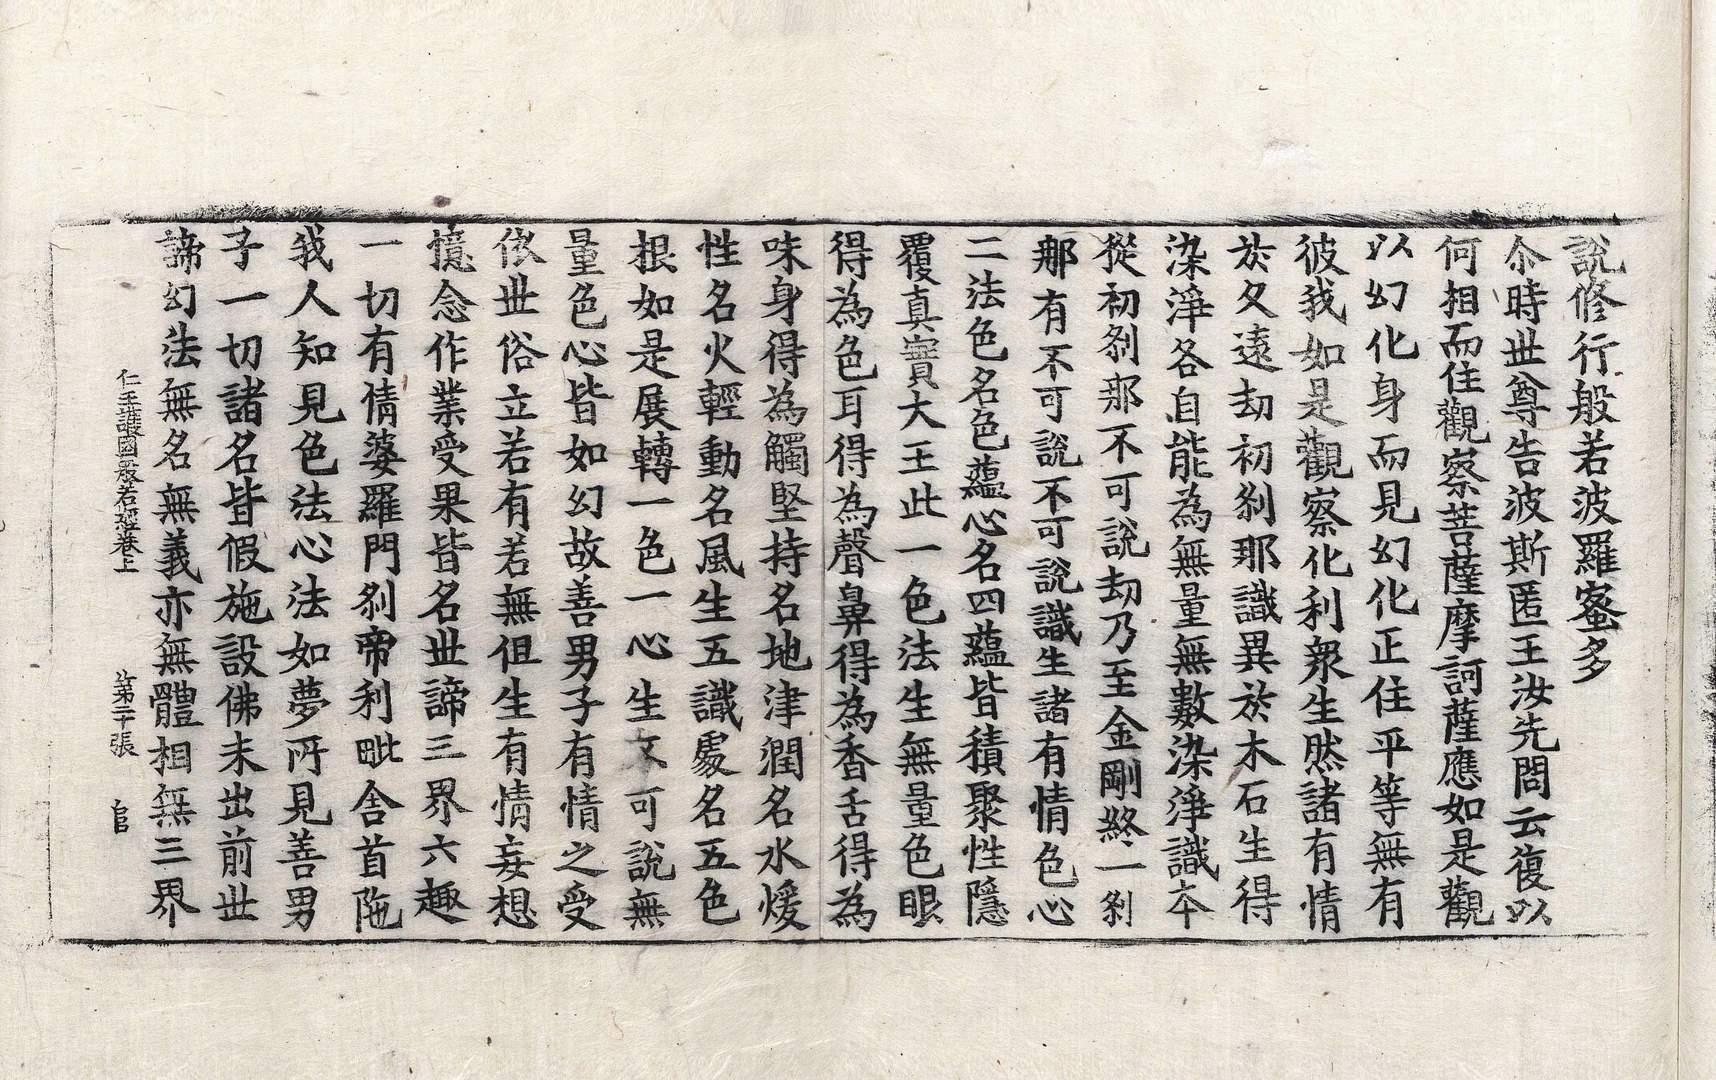 說修行般若波羅蜜多
尒時世尊告波斯匿王汝先問云復以
何相而住觀察菩薩摩訶薩應如是觀
以幻化身而見幻化正住平等無有
彼我如是觀察化利衆生然諸有情
於久遠劫初刹那識異於木石生得
染淨各自能為無量無數染淨識本
從初刹那不可說劫乃至金剛終一刹
那有不可說不可說識生諸有情色心
二法色名色蘊心名四蘊皆積聚性隱
覆真實大王此一色法生無量色眼
得為色耳得為聲鼻得為香舌得為
味身得為觸堅持名地津潤名水煖
性名火輕動名風生五識處名五色
根如是展轉一色一心生不可說無
量色心皆如幻故善男子有情之受
依世俗立若有若無但生有情妄想
憶念作業受果皆名世諦三界六趣
一切有情婆羅門刹帝利毗舍首陁
我人知見色法心法如夢所見善男
子一切諸名皆假施設佛未出前世
諦幻法無名無義亦無體相無三界
仁王護國般若經卷上 第二十張